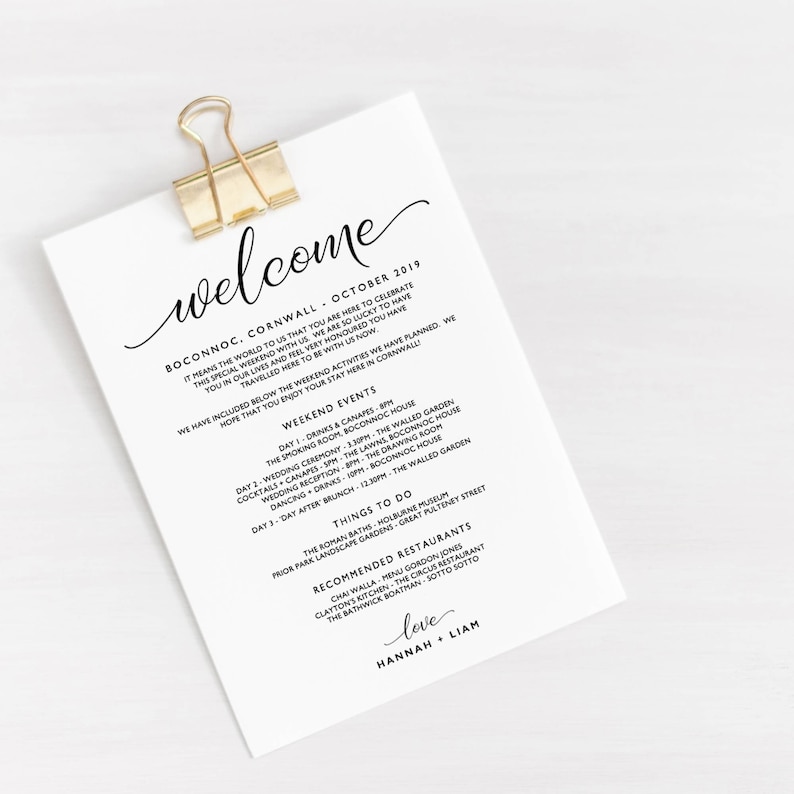 welcome
BOCONNOC, CORNWALL - OCTOBER 2019
IT MEANS THE WORLD TO US THAT YOU ARE HERE TO CELEBRATE
THIS SPECIAL WEEKEND WITH US. WE ARE SO LUCKY TO HAVE
YOU IN OUR LIVES AND FEEL VERY HONOURED YOU HAVE
TRAVELLED HERE TO BE WITH US NOW.
WE HAVE INCLUDED BELOW THE WEEKEND ACTIVITIES WE HAVE PLANNED. WE
HOPE THAT YOU ENJOY YOUR STAY HERE IN CORNWALL!
WEEKEND EVENTS
DAY 1 - DRINKS & CANAPES - 8PM
THE SMOKING ROOM, BOCONNOC HOUSE
DAY 2 - WEDDING CEREMONY - 3.30PM - THE WALLED GARDEN
COCKTAILS + CANAPES - 5PM - THE LAWNS, BOCONNOC HOUSE
WEDDING RECEPTION - 8PM - THE DRAWING ROOM
DANCING + DRINKS - 10PM - BOCONNOC HOUSE
DAY 3 - 'DAY AFTER' BRUNCH - 12.30PM - THE WALLED GARDEN
THINGS TO DO
THE ROMAN BATHS - HOLBURNE MUSEUM
PRIOR PARK LANDSCAPE GARDENS - GREAT PULTENEY STREET
RECOMMENDED RESTAURANTS
CHAI WALLA - MENU GORDON JONES
CLAYTON'S KITCHEN - THE CIRCUS RESTAURANT
THE BATHWICK BOATMAN - SOTTO SOTTO
love
HANNAH + LIAM